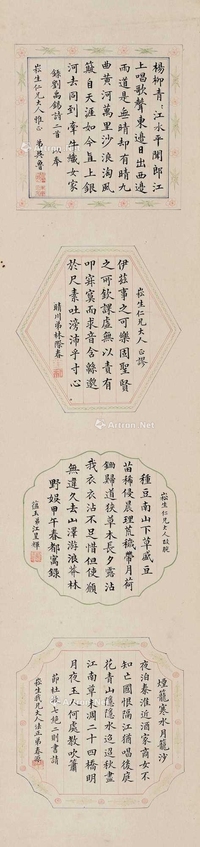 楊柳青〻江水平聞郎江
上唱歌聲東邊日出西邊
雨道是無晴却有晴九
曲黃河萬里沙浪淘風
簸自天涯如今直上銀
河去同到牽牛織女家
錄劉禹錫詩二首
崧生仁兄大人雅正
弟吳魯
崧生仁兄大人正謬
伊茲事之可樂固聖賢
之可欽課虛無以責有
叩寂寞而求音含緜邈
於尺素吐滂沛乎寸心
晴川弟林際春
崧生仁兄大人
種豆南山下草盛豆
苗稀侵晨理荒穢帶月荷
鋤歸道狹草木長夕露沾
我衣衣沾不足惜但使願
無違久去山澤游浪莽林
野娛甲午春都寓錄
蘊玉弟江呈輝
煙籠寒水月籠沙
夜泊秦淮近酒家商女不
知亡國恨隔江猶唱後庭
花青山隱隱水迢迢秋盡
江南草未凋二十四橋明
月夜玉人何處教吹簫
節杜牧七絕二則書請
崧生我兄大人法正弟春
Artron.Net